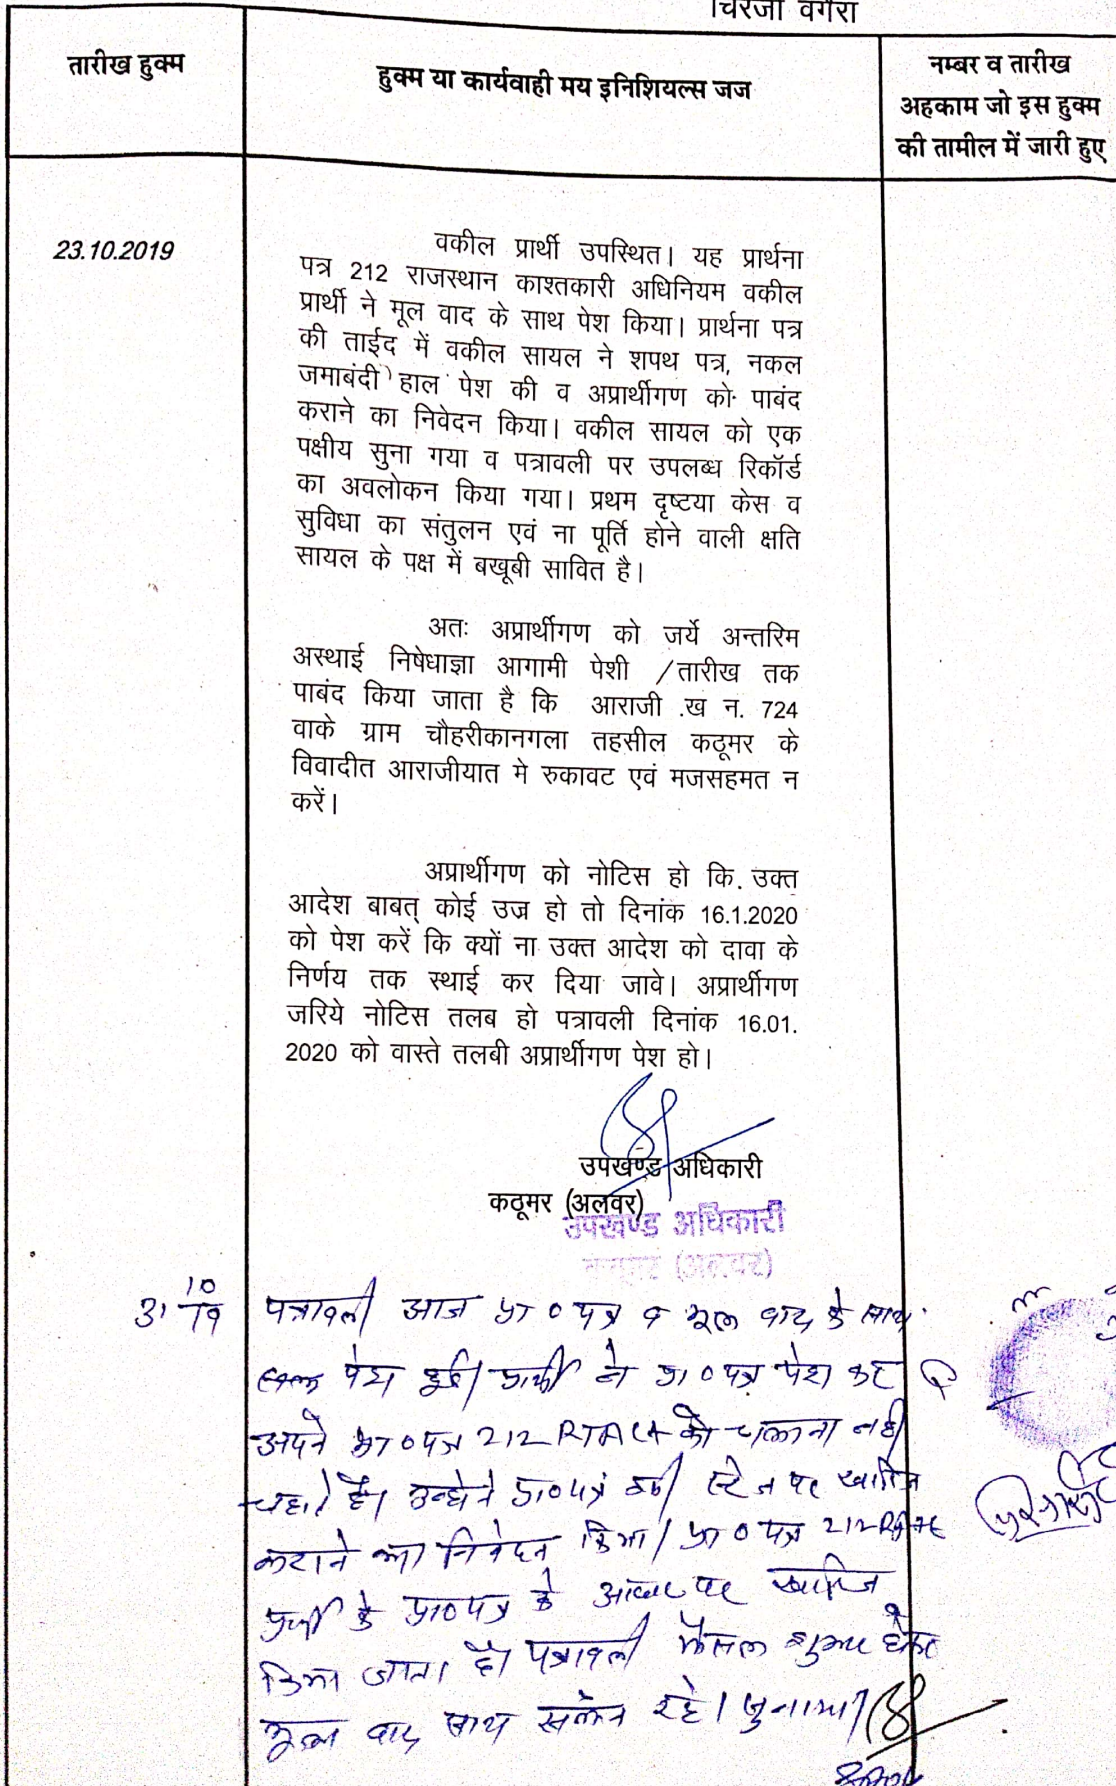 चिरंजी वगैरा
तारीख हुक्म
हुक्म या कार्यवाही मय इनिशियल्स जज
नम्बर व तारीख
अहकाम जो इस हुक्म
की तामील में जारी हुए
23.10.2019
वकील प्रार्थी उपस्थित। यह प्रार्थना
पत्र 212 राजस्थान काश्तकारी अधिनियम वकील
प्रार्थी ने मूल वाद के साथ पेश किया। प्रार्थना पत्र
की ताईद में वकील सायल ने शपथ पत्र, नकल
जमाबंदी हाल पेश की व अप्रार्थीगण को पाबंद
कराने का निवेदन किया। वकील सायल को एक
पक्षीय सुना गया व पत्रावली पर उपलब्ध रिकॉर्ड
का अवलोकन किया गया। प्रथम दृष्टया केस व
सुविधा का संतुलन एवं ना पूर्ति होने वाली क्षति
सायल के पक्ष में बखूबी सावित है।
अतः अप्रार्थीगण को जर्ये अन्तरिम
अस्थाई निषेधाज्ञा आगामी पेशी /तारीख तक
पाबंद किया जाता है कि आराजी .ख न. 724
वाके ग्राम चौहरीकानगला तहसील कठूमर के
विवादीत आराजीयात मे रुकावट एवं मजसहमत न
करें।
अप्रार्थीगण को नोटिस हो कि. उक्त
आदेश बाबत् कोई उज्र हो तो दिनांक 16.1.2020
को पेश करें कि क्यों ना उक्त आदेश को दावा के
निर्णय तक स्थाई कर दिया जावे। अप्रार्थीगण
जरिये नोटिस तलब हो पत्रावली दिनांक 16.01.
2020 को वास्ते तलबी अप्रार्थीगण पेश हो।
उपखण्ड अधिकारी
कठूमर (अलवर)
उपखण्ड अधिकारी
कठूमर (अलवर)
31 10/19 पत्रावली आज प्रा०पत्र व मूल वाद के साथ
पेश हुई। प्रार्थी ने प्रा०पत्र पेश कर
अपने प्रा०पत्र 212 RTAct को चलाना नहीं
चहाते है। उन्होने प्रा०पत्र इसी स्टेज पर खारिज
कराने का निवेदन किया। प्रा०पत्र 212
प्रार्थी के प्रा०पत्र के आधार पर खारिज
किया जाता है। पत्रावली फैसल शुमार होकर
मूल वाद साथ संलग्न रहे। सुनाया।